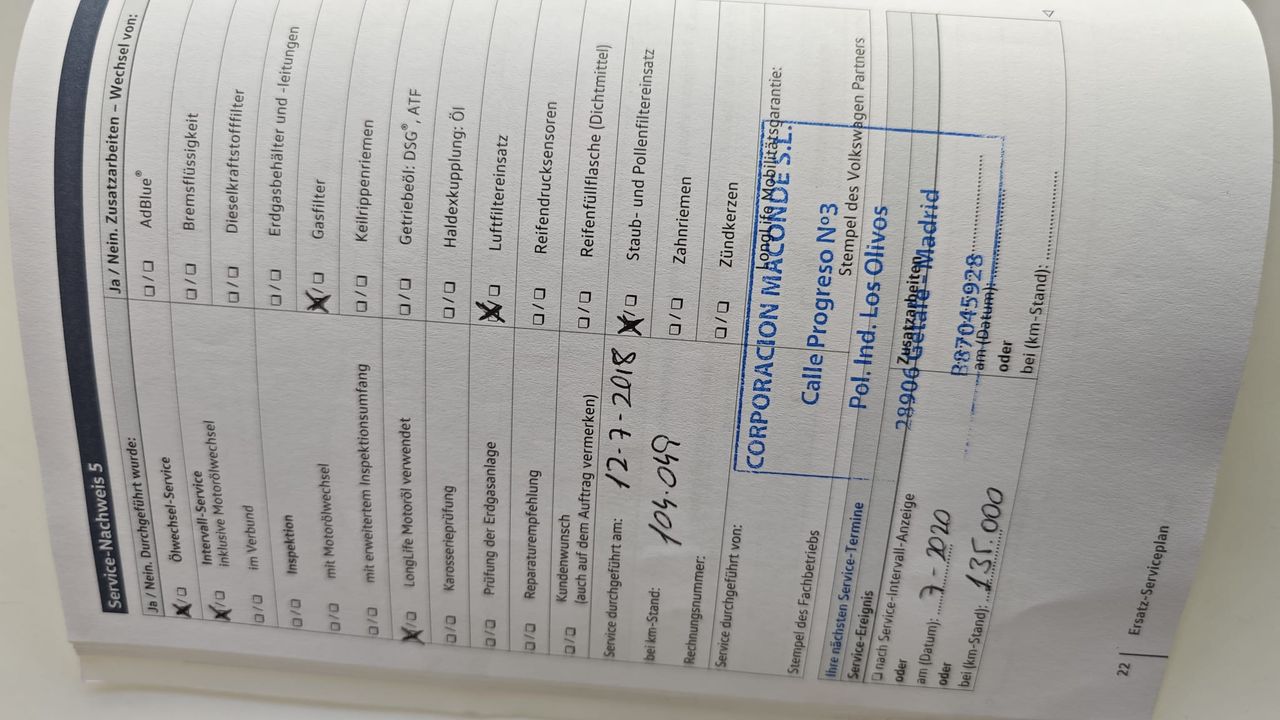 Service-Nachweis 5
Ja / Nein. Durchgeführt wurde:
Ölwechsel-Service
Intervall-Service
inklusive Motorölwechsel
im Verbund
Inspektion
mit Motorölwechsel
mit erweitertem Inspektionsumfang
LongLife Motoröl verwendet
Karosserieprüfung
Prüfung der Erdgasanlage
Reparaturempfehlung
Kundenwunsch
(auch auf dem Auftrag vermerken)
Ja / Nein. Zusatzarbeiten – Wechsel von:
AdBlue®
Bremsflüssigkeit
Dieselkraftstofffilter
Erdgasbehälter und -leitungen
Gasfilter
Keilrippenriemen
Getriebeöl: DSG®, ATF
Haldexkupplung: Öl
Luftfiltereinsatz
Reifendrucksensoren
Reifenfüllflasche (Dichtmittel)
Staub- und Pollenfiltereinsatz
Zahnriemen
Zündkerzen
Service durchgeführt am: 12-7-2018
bei km-Stand: 104.049
Rechnungsnummer:
Service durchgeführt von:
LongLife Mobilitätsgarantie:
CORPORACION MACONDE S.L.
Calle Progreso Nº3
Pol. Ind. Los Olivos
28906 Getafe - Madrid
B87045928
Stempel des Fachbetriebs
Stempel des Volkswagen Partners
Ihre nächsten Service-Termine
Service-Ereignis
nach Service-Intervall-Anzeige
oder
am (Datum): 7-2020
oder
bei (km-Stand): 135.000
Zusatzarbeiten
am (Datum):
oder
bei (km-Stand):
22
Ersatz-Serviceplan